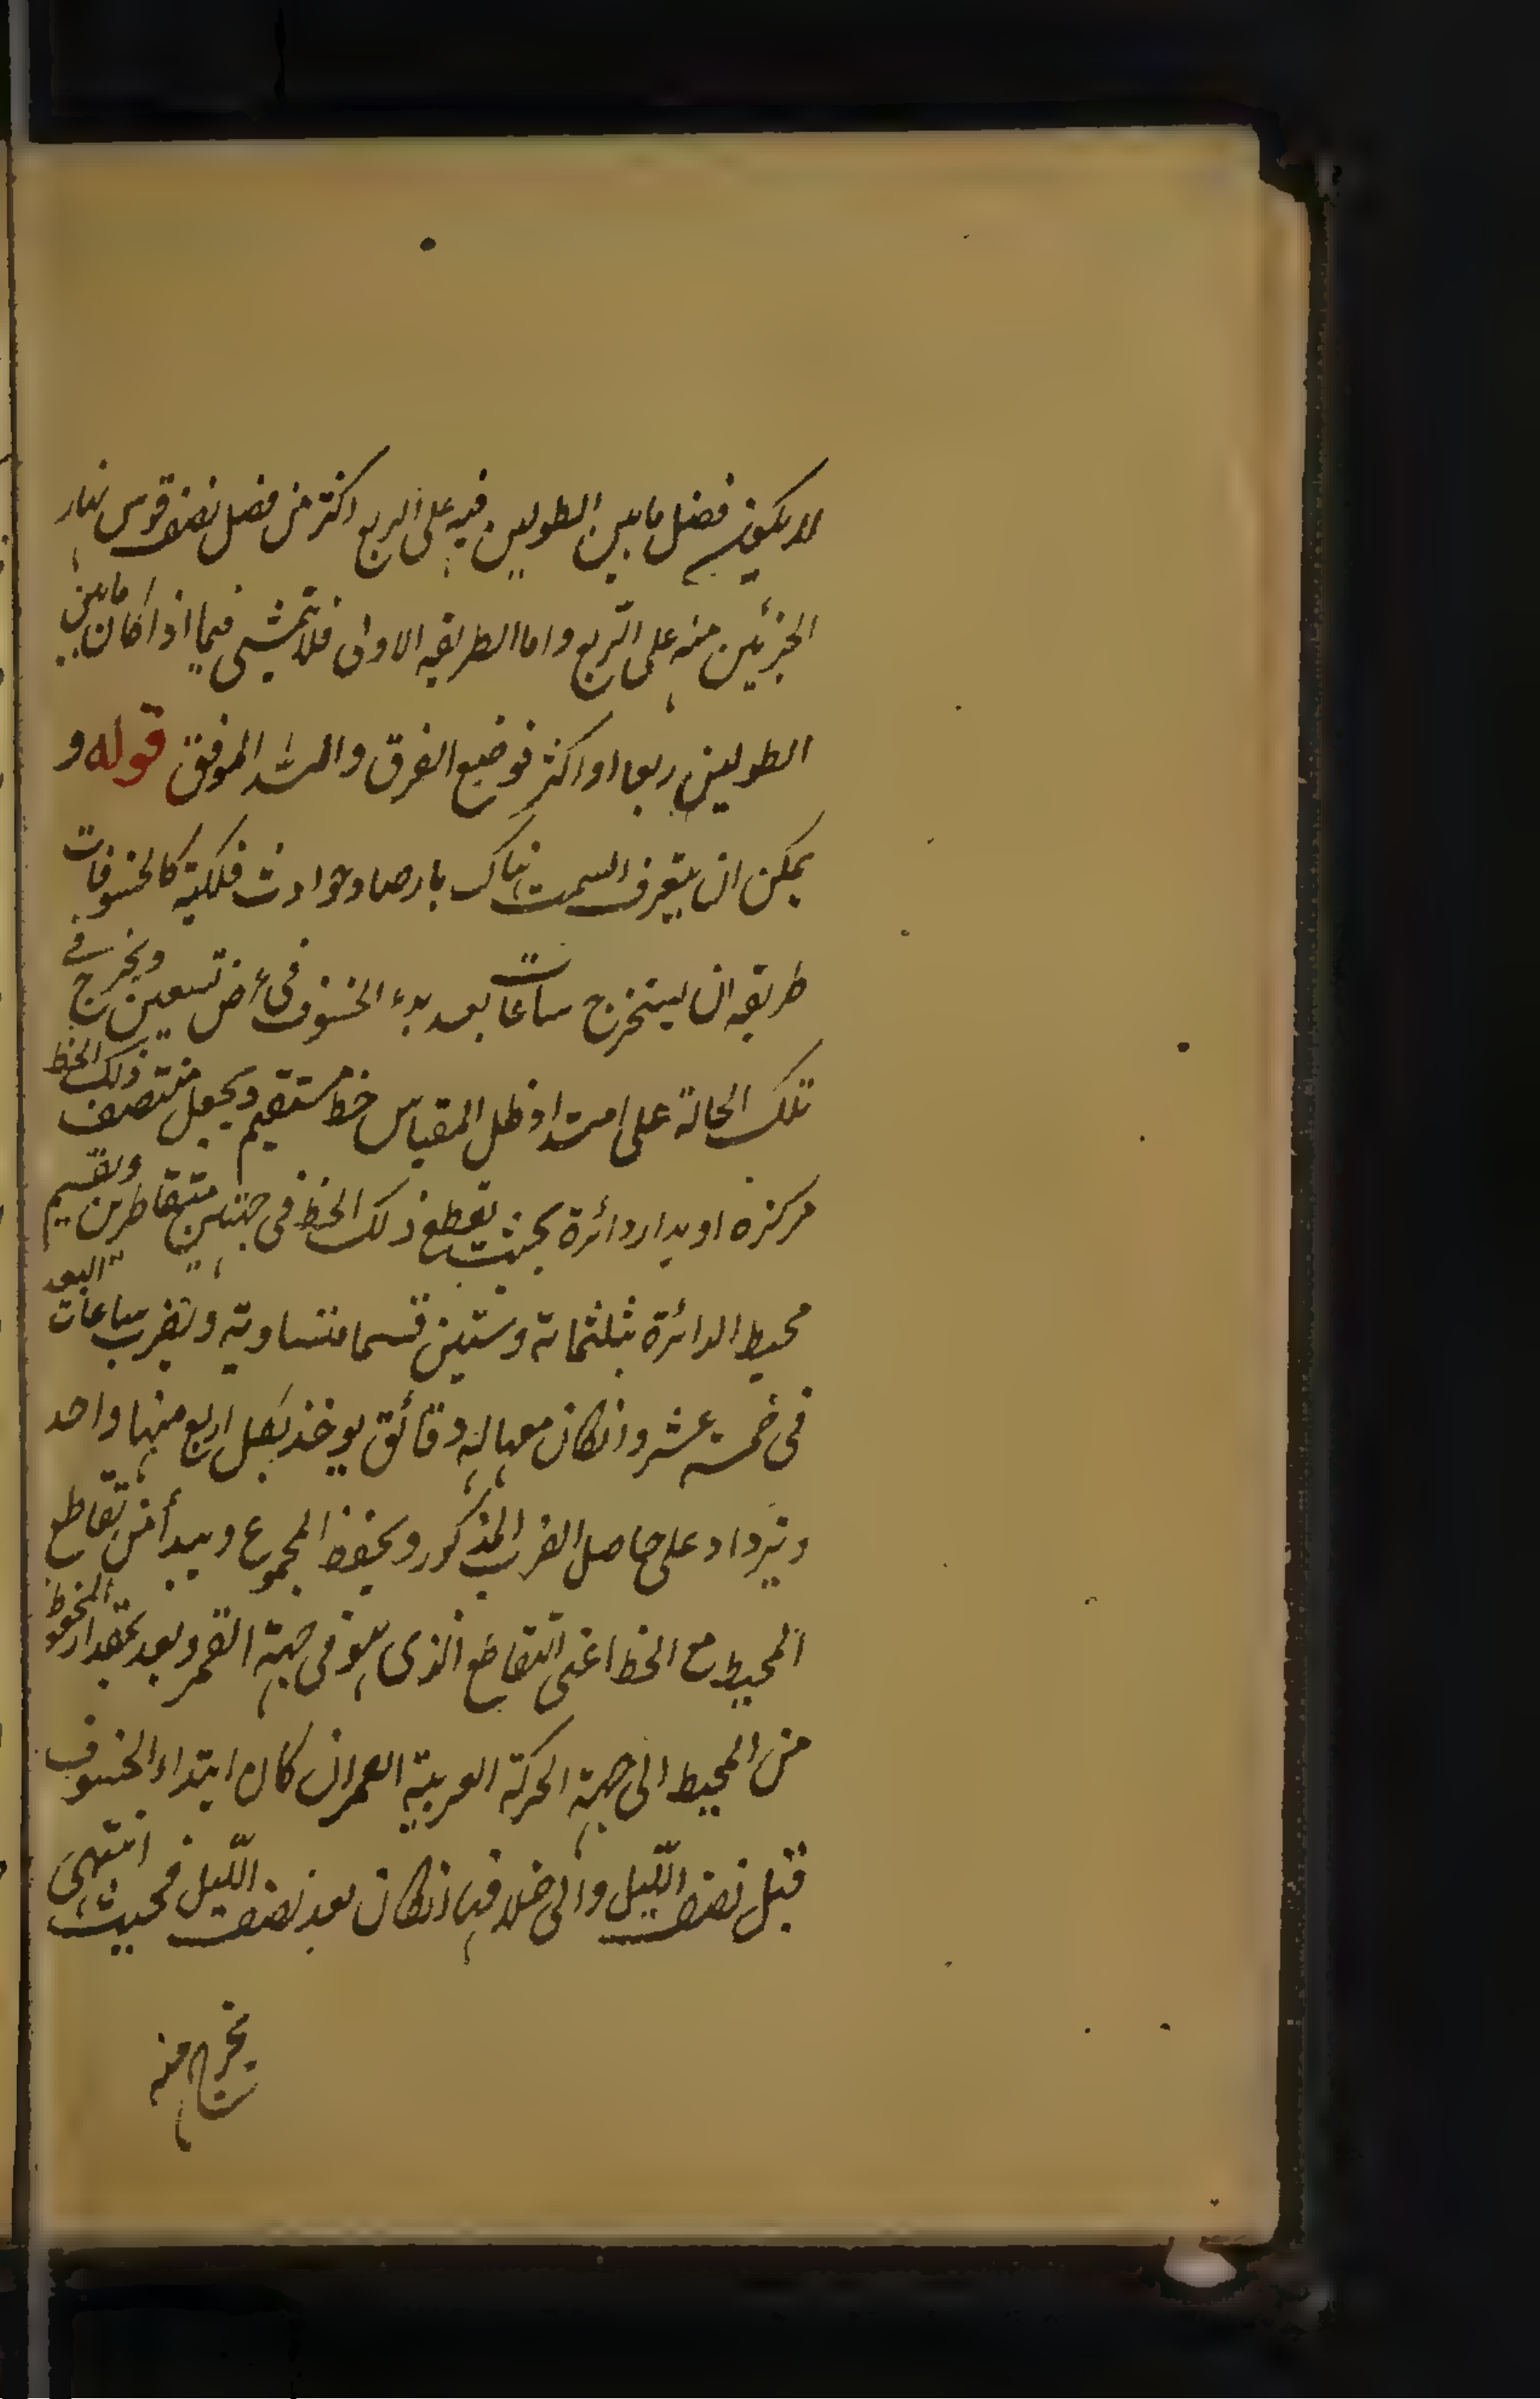 لا يكون فضل ما بين الطولين فيه على الربع اكثر من فضل نصف قوس نهار
الجزئين منه على الربع واما الطريقه الاولى فلا تتمشى فيما اذا كان ما بين
الطولين ربعا او اكثر فوضع الفرق والله الموفق قوله و
يمكن ان يتعرف السمت هناك بارصاد حوادث فلكية كالخسوفات
طريقه ان يستخرج ساعات بعد بدء الخسوف فى عرض تسعين ويخرج فى
تلك الحالة على امتداد ظل المقياس خط مستقيم ويجعل منتصف ذلك الخط
مركزه او يدار دائرة بحيث يقطع ذلك الخط فى جهتين متقاطرين ويقسم
محيط الدائرة بثلثمائة وستين قسما متساوية ويضرب ساعات البعد
فى خمسة عشر وانكان معها له دقائق يوخذ بكل اربع منها واحد
ويزداد على حاصل الضرب المذكور ويحفظ المجموع ويبدأ من تقاطع
المحيط مع الخط اعنى التقاطع الذى هو فى جهة القمر ويعد بمقدار المحفوظ
من المحيط الى جهة الحركة الغربية للقمر ان كان ابتداء الخسوف
قبل نصف الليل والى خلافها انكان بعد نصف الليل فحيث انتهى
يخرج منه